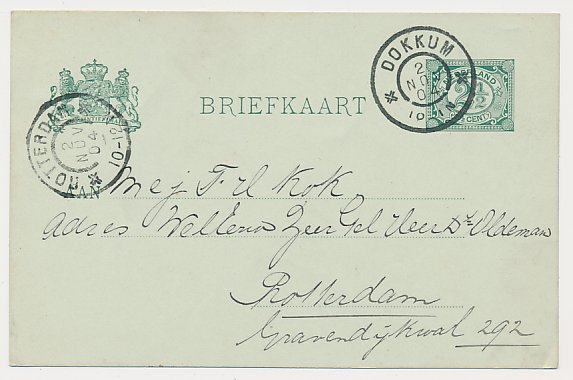 DOKKUM
2
NOV
04
10
NEDERLAND
2½
CENT
BRIEFKAART
ROTTERDAM
10-12
2
NOV
04
AAN
Mej F. Kok
Adres Zeer Gel Heer Dr Oldeman
Rotterdam
Gravendijkwal 292